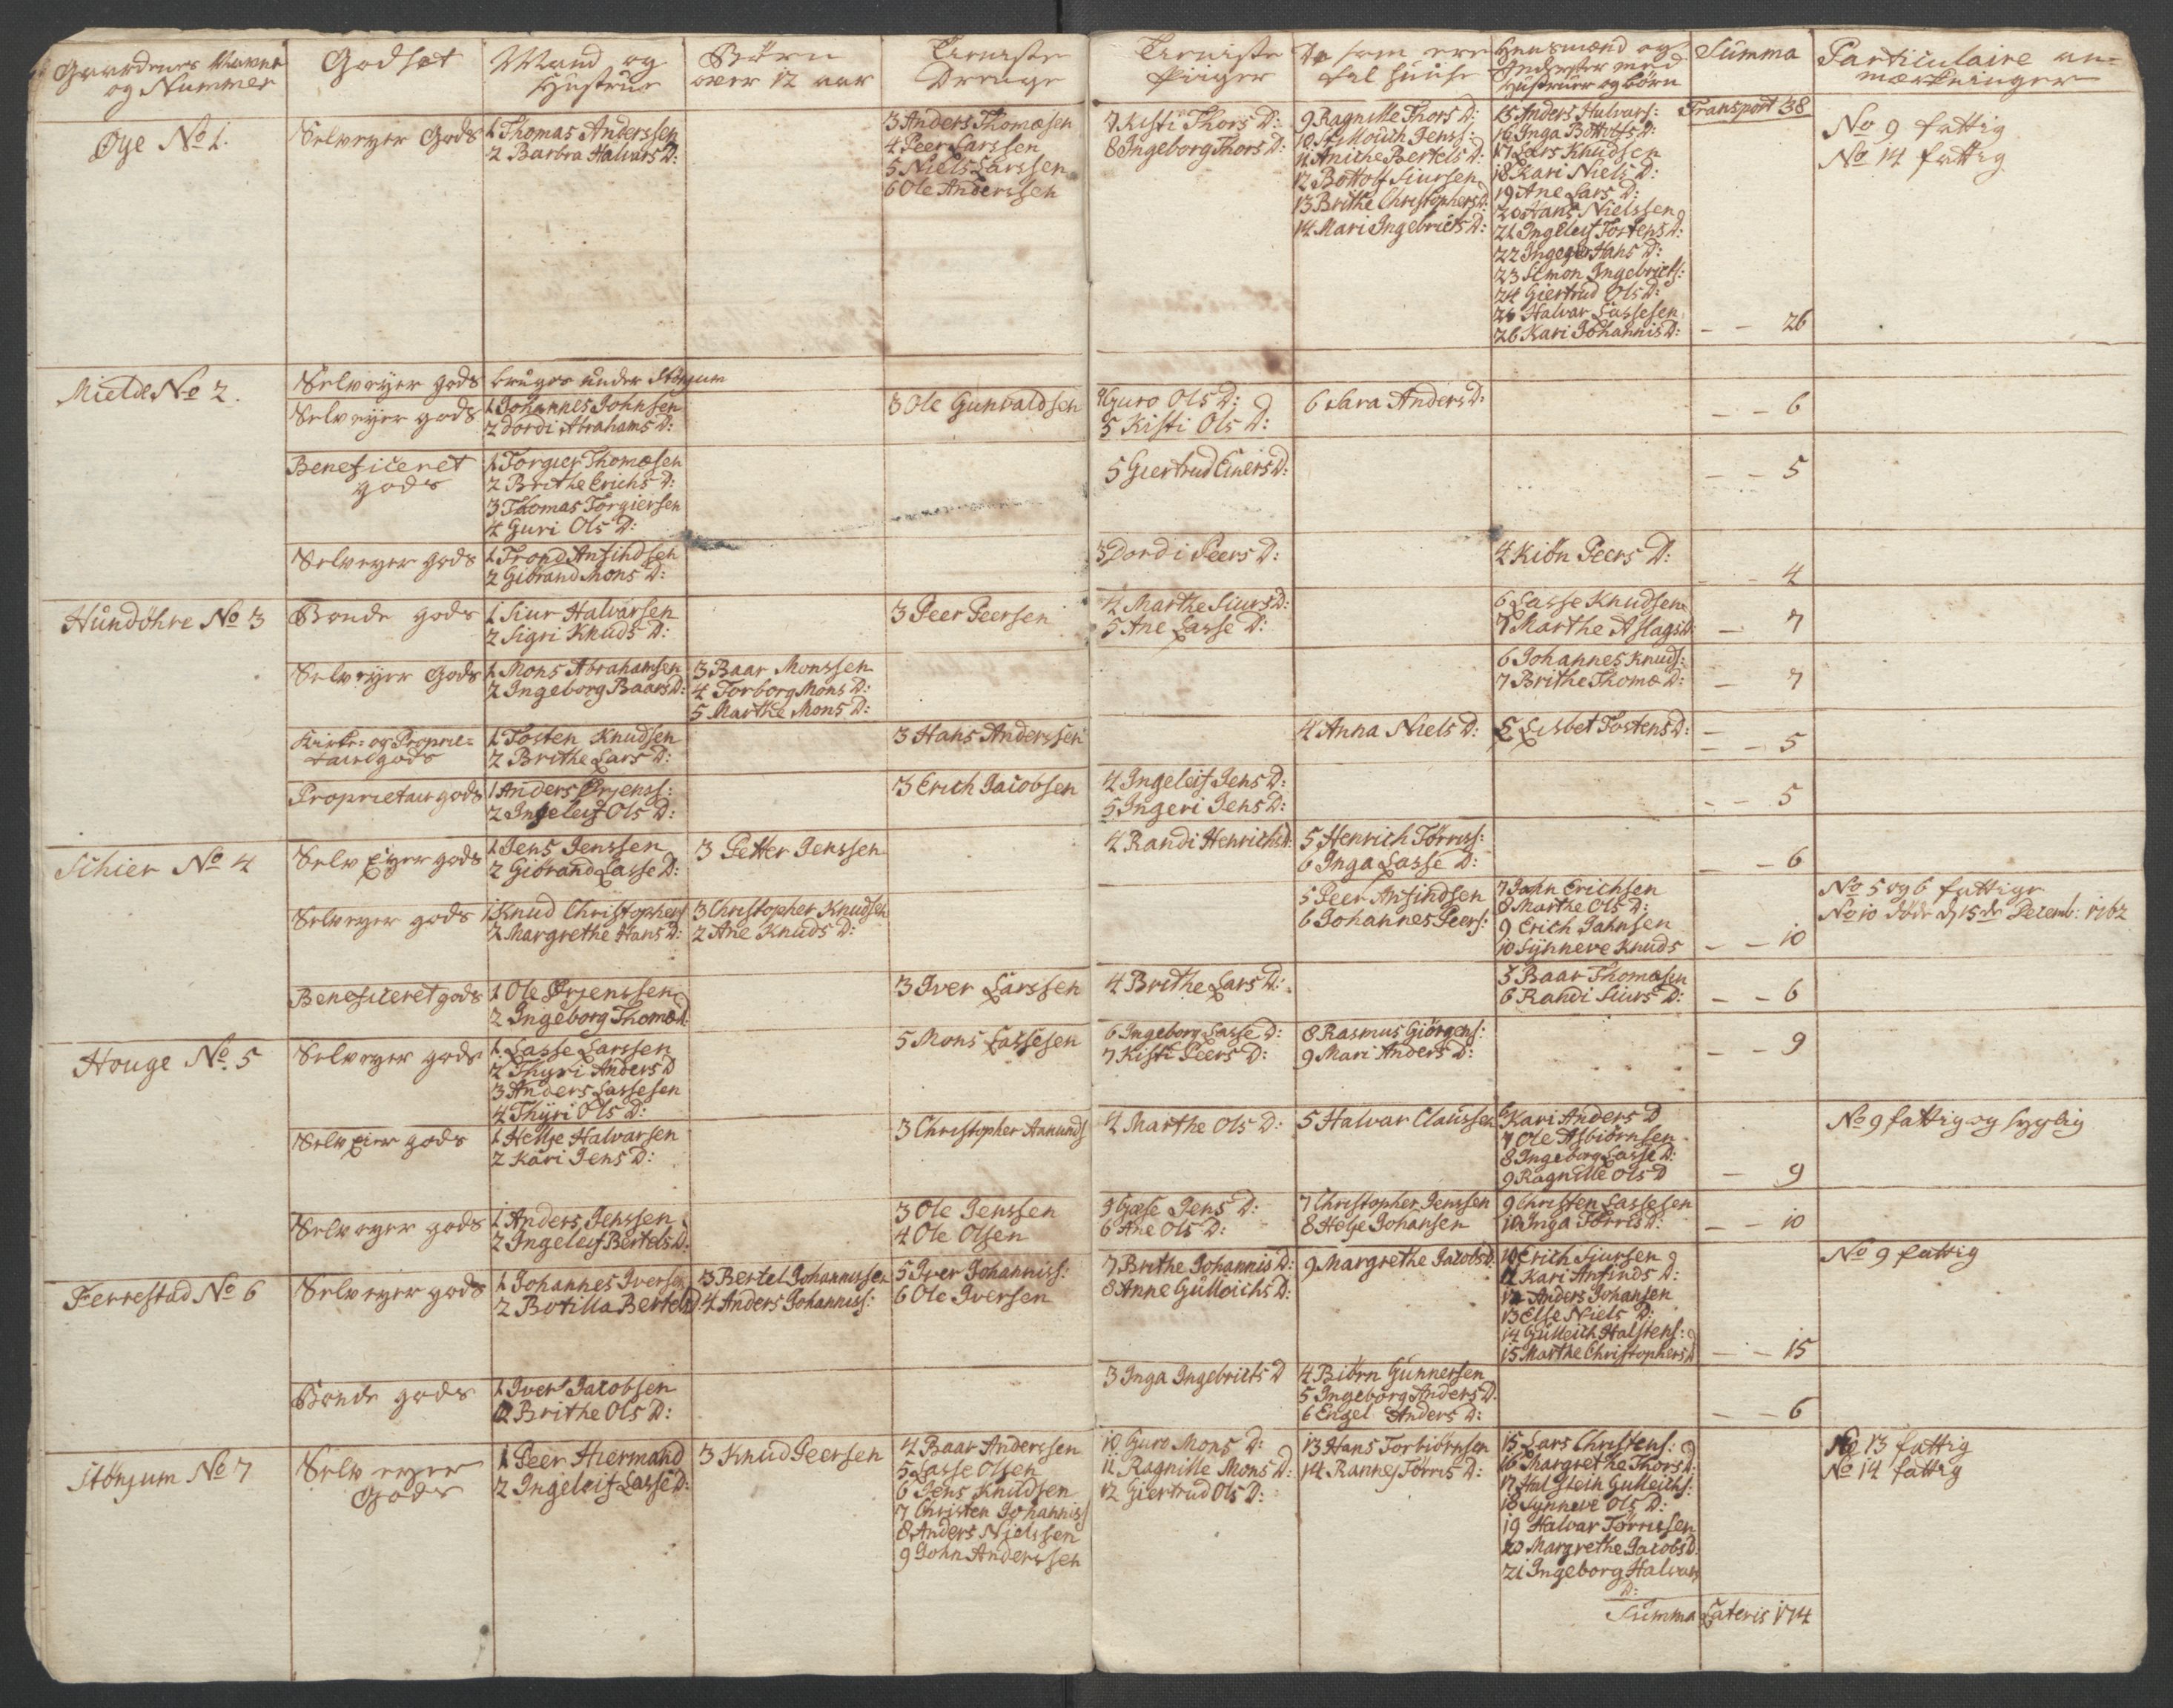 Gaardenes Navne
og Nummer
Godset
Mand og
Hustrue
Børn
over 12 aar
Tieniste
Drenge
Tieniste
Piiger
De som ere
til huuse
Huusmænd og
Inderster med
Hustruer og børn
Summa
Particulaire an-
mærkninger
Transport 38
Øye No 1.
Selveyer Gods
1 Thomas Anderssen
2 Barbra Halvars D:
3 Anders Thomæsen
4 Peer Larssen
5 Niels Larssen
6 Ole Anderssen
7 Kisti Thors D:
8 Ingeborg Thors D:
9 Ragnille Thors D:
11 Aniche Bertels D:
12 Bottolf Siursen
13 Brithe Christophers D:
14 Mari Ingebricts D:
15 Anders Halvars:
16 Inga Bottolfs D:
17 Lars Knudsen
18 Kari Niels D:
19 Ane Lars D:
20 Hans Nielssen
21 Ingeleif Tostens D:
22 Hans D:
23 Simon Ingebricts:
24 Giertrud Ols D:
25 Halvar Lassesen
26 Kari Johannis D:
- - 26
No 9 fattig
No 14 fattig
Mielde No 2.
Selveyer gods
bruges under Stønjum
Selveyer gods
1 Johannes Johnsen
2 Dordi Abrahams D:
3 Ole Gunvaldsen
4 Guro Ols D:
5 Kisti Ols D:
6 Sara Anders D:
- - 6
Beneficeret
gods
1 Torgier Thomæsen
2 Brithe Erichs D:
3 Thomas Torgiersen
4 Guri Ols D:
5 Giertrud Einers D:
- - 5
Selveyer gods
1 Trond Ansindsen
2 Giørand Mons D:
3 Dordi Peers D:
4 Kiøn Peers D:
- - 4
Hundøhre No 3
Bonde gods
1 Siur Halvarsen
2 Sigri Knuds D:
3 Peer Peersen
4 Marthe Siurs D:
5 Ane Lasse D:
6 Lasse Knudsen
7 Marthe Aslags D:
- 7
Selveyer Gods
1 Mons Abrahamsen
2 Ingeborg Baars D:
3 Baar Monssen
4 Torborg Mons D:
5 Marthe Mons D:
6 Johannes Knuds:
7 Brithe Thomæ D:
- 7
Kirke- og Proprie-
tairgods
1 Tosten Knudsen
2 Brithe Lars D:
3 Hans Anderssen
4 Anna Niels D:
5 Lisbet Tostens D:
- - 5
Proprietair gods
1 Anders Ørjenss:
2 Ingeleif Ols D:
3 Erich Jacobsen
4 Ingeleif Jens D:
5 Ingeri Jens D:
- - 5
Schier No 4
Selv Eyer gods
1 Jens Jenssen
2 Giørand Lasse D:
3 Petter Jenssen
4 Randi Henrichs D:
5 Henrich Tørriss:
6 Inga Lasse D:
- 6
Selveyer gods
1 Knud Christophers
2 Margrethe Hans D:
3 Christopher Knudsen
2 Ane Knuds D:
5 Peer Ansindsen
6 Johannes Peers:
7 John Erichsen
8 Marthe Ols D:
9 Erich Jahnsen
10 Synneve Knuds
- - 10
No 5 og 6 fattige
No 10 døde d 15de Decemb: 1762
Beneficeret gods
1 Ole Ørjenssen
2 Ingeborg Thomæ D:
3 Iver Larssen
4 Brithe Lars D:
5 Baar Thomæsen
6 Randi Siurs D:
- - 6
Houge No 5
Selveyer gods
1 Lasse Larssen
2 Thyri Anders D
3 Anders Lassesen
4 Thyri Ols D:
5 Mons Lassesen
6 Ingeborg Lasse D:
7 Kisti Peers D:
8 Rasmus Giørgens:
9 Mari Anders D:
- - 9
Selv Eier gods
1 Helje Halvarsen
2 Kari Jens D:
3 Christopher Aamunds
4 Marthe Ols D:
5 Halvar Claussen
6 Kari Anders D
7 Ole Asbiørnsen
8 Ingeborg Lasse D:
9 Ragnille Ols D
- 9
No 9 fattig og syglig
Selveyer gods
1 Anders Jenssen
2 Ingeleif Bertels D:
3 Ole Jenssen
4 Ole Olsen
5 Gæse Jens D:
6 Ane Ols D:
7 Christopher Jenssen
8 Helje Johansen
9 Christen Lassesen
10 Inga Tørris D:
- - 10
Ferrestad No 6
Selveyer gods
1 Johannes Iversen
2 Botilla Bertels D:
3 Bertel Johannissen
4 Anders Johanniss:
5 Iver Johanniss:
6 Ole Iversen
7 Brithe Johannis D:
8 Anne Gulleichs D:
9 Margrethe Jacobs D:
10 Erich Siursen
11 Kari Ansinds D:
12 Anders Johansen
13 Else Niels D:
14 Gulleich Halstens:
15 Marthe Christophers D
- - 15
No 9 fattig
Bonde gods
1 Iver Jacobsen
2 Brithe Ols D:
3 Inga Ingebricts D
4 Biørn Gunnersen
5 Ingeborg Anders D.
6 Engel Anders D:
- - 6
Stønjum No 7
Selveyer
Gods
1 Peer Hiermand
2 Ingeleif Lasse D:
3 Knud Peersen
4 Baar Anderssen
5 Lasse Olsen
6 Jens Knudsen
7 Christen Johanniss
8 Anders Nielssen
9 John Anderssen
10 Guro Mons D:
11 Ragnille Mons D:
12 Giertrud Ols D:
13 Hans Torbiørnsen
14 Rannej Tørris D:
15 Lars Christens:
16 Margrethe Thors D:
17 Halstein Gulleichs:
18 Synneve Ols D:
19 Halvar Tørrissen
20 Margrethe Jacobs D:
21 Ingeborg Halvars
D:
No 13 fattig
No 14 fattig
Summa Lateris 174